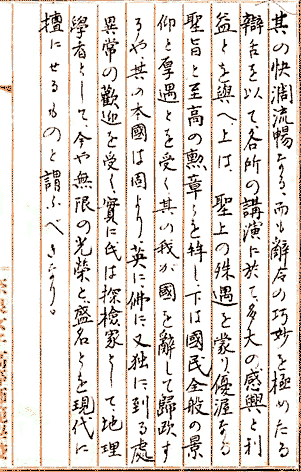 其の快濶流暢なる、而も辭令の巧妙を極めたる
辯舌を以て各所の講演に於て多大の感興と利
益とを與へ、上は、聖上の殊遇を蒙り優渥なる
聖旨と至高の勲章とを拝し、下は國民全般の景
仰と厚遇とを受く其の我が國を辭して歸歐す
るや其の本國は固より英に、佛に、又独に到る處
異常の歡迎を受く、實に氏は探檢家として地理
學者として、今や無限の光榮と、盛名とを現代に
擅にせるものと謂ふべきなり。